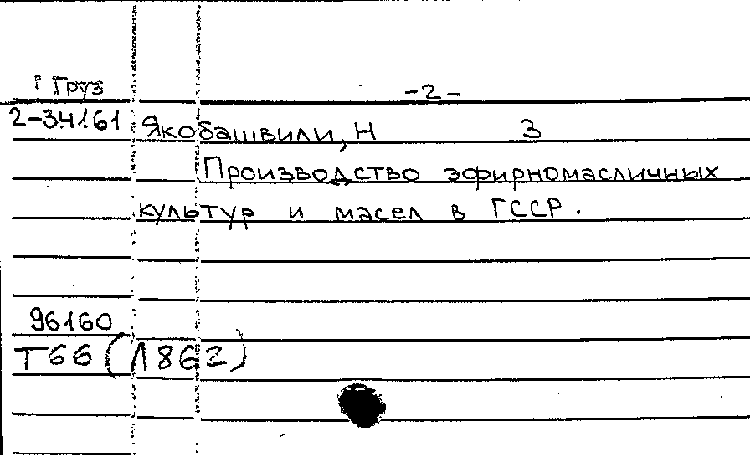 Груз -2-
2-34161 Якобашвили, Н 3
Производство эфирномасличных
культур и масел в ГССР.
96160
Т66 (1862)